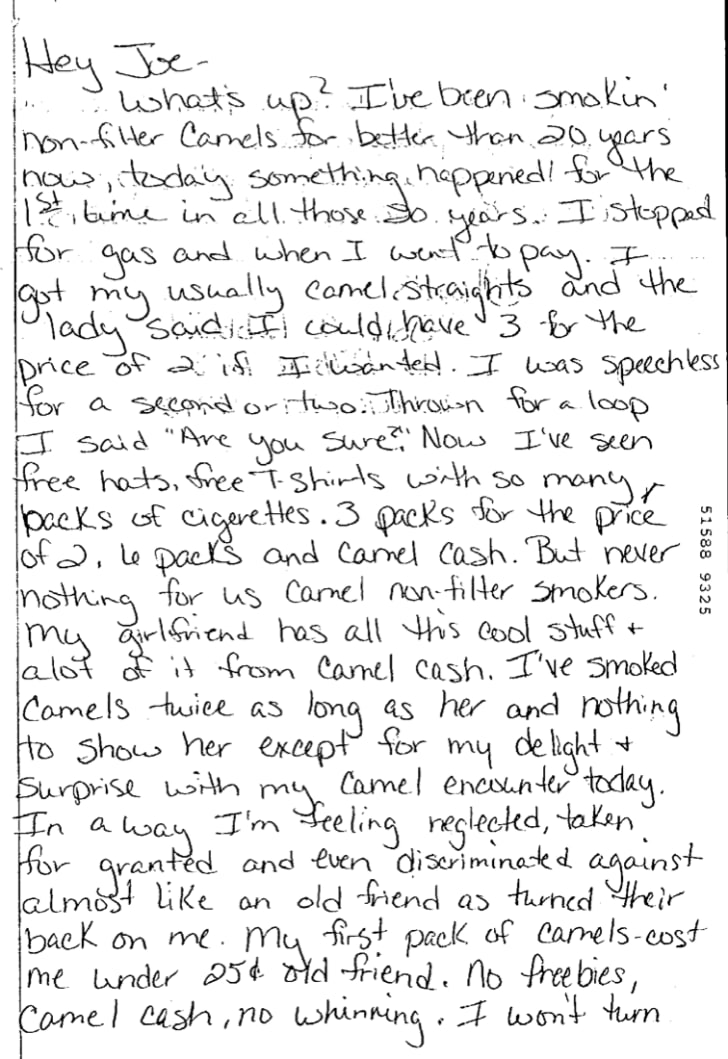 Hey Joe-
What's up? I've been smokin'
non-filter Camels for better than 20 years
now, today something happened! for the
1st time in all those 20 years. I stopped
for gas and when I went to pay. I
got my usually camel straights and the
lady said I could have 3 for the
price of 2 if I wanted. I was speechless
for a second or two. Thrown for a loop
I said "Are you sure?" Now I've seen
free hats, free T-shirts with so many
packs of cigerettes. 3 packs for the price
of 2, 6 packs and Camel Cash. But never
nothing for us Camel non-filter smokers.
My girlfriend has all this cool stuff +
alot of it from Camel cash. I've smoked
Camels twice as long as her and nothing
to show her except for my delight +
surprise with my Camel encounter today.
In a way I'm feeling neglected, taken
for granted and even discriminated against
almost like an old friend as turned their
back on me. My first pack of Camels-cost
me under 25¢ old friend. No freebies,
Camel cash, no whinning. I won't turn
51588 9325